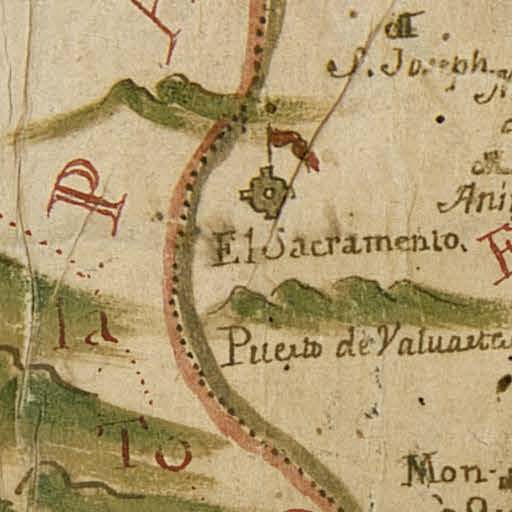 S. Joseph.
P
El Sacramento.
Ia
Puerto de Valuarta
To
Mon-